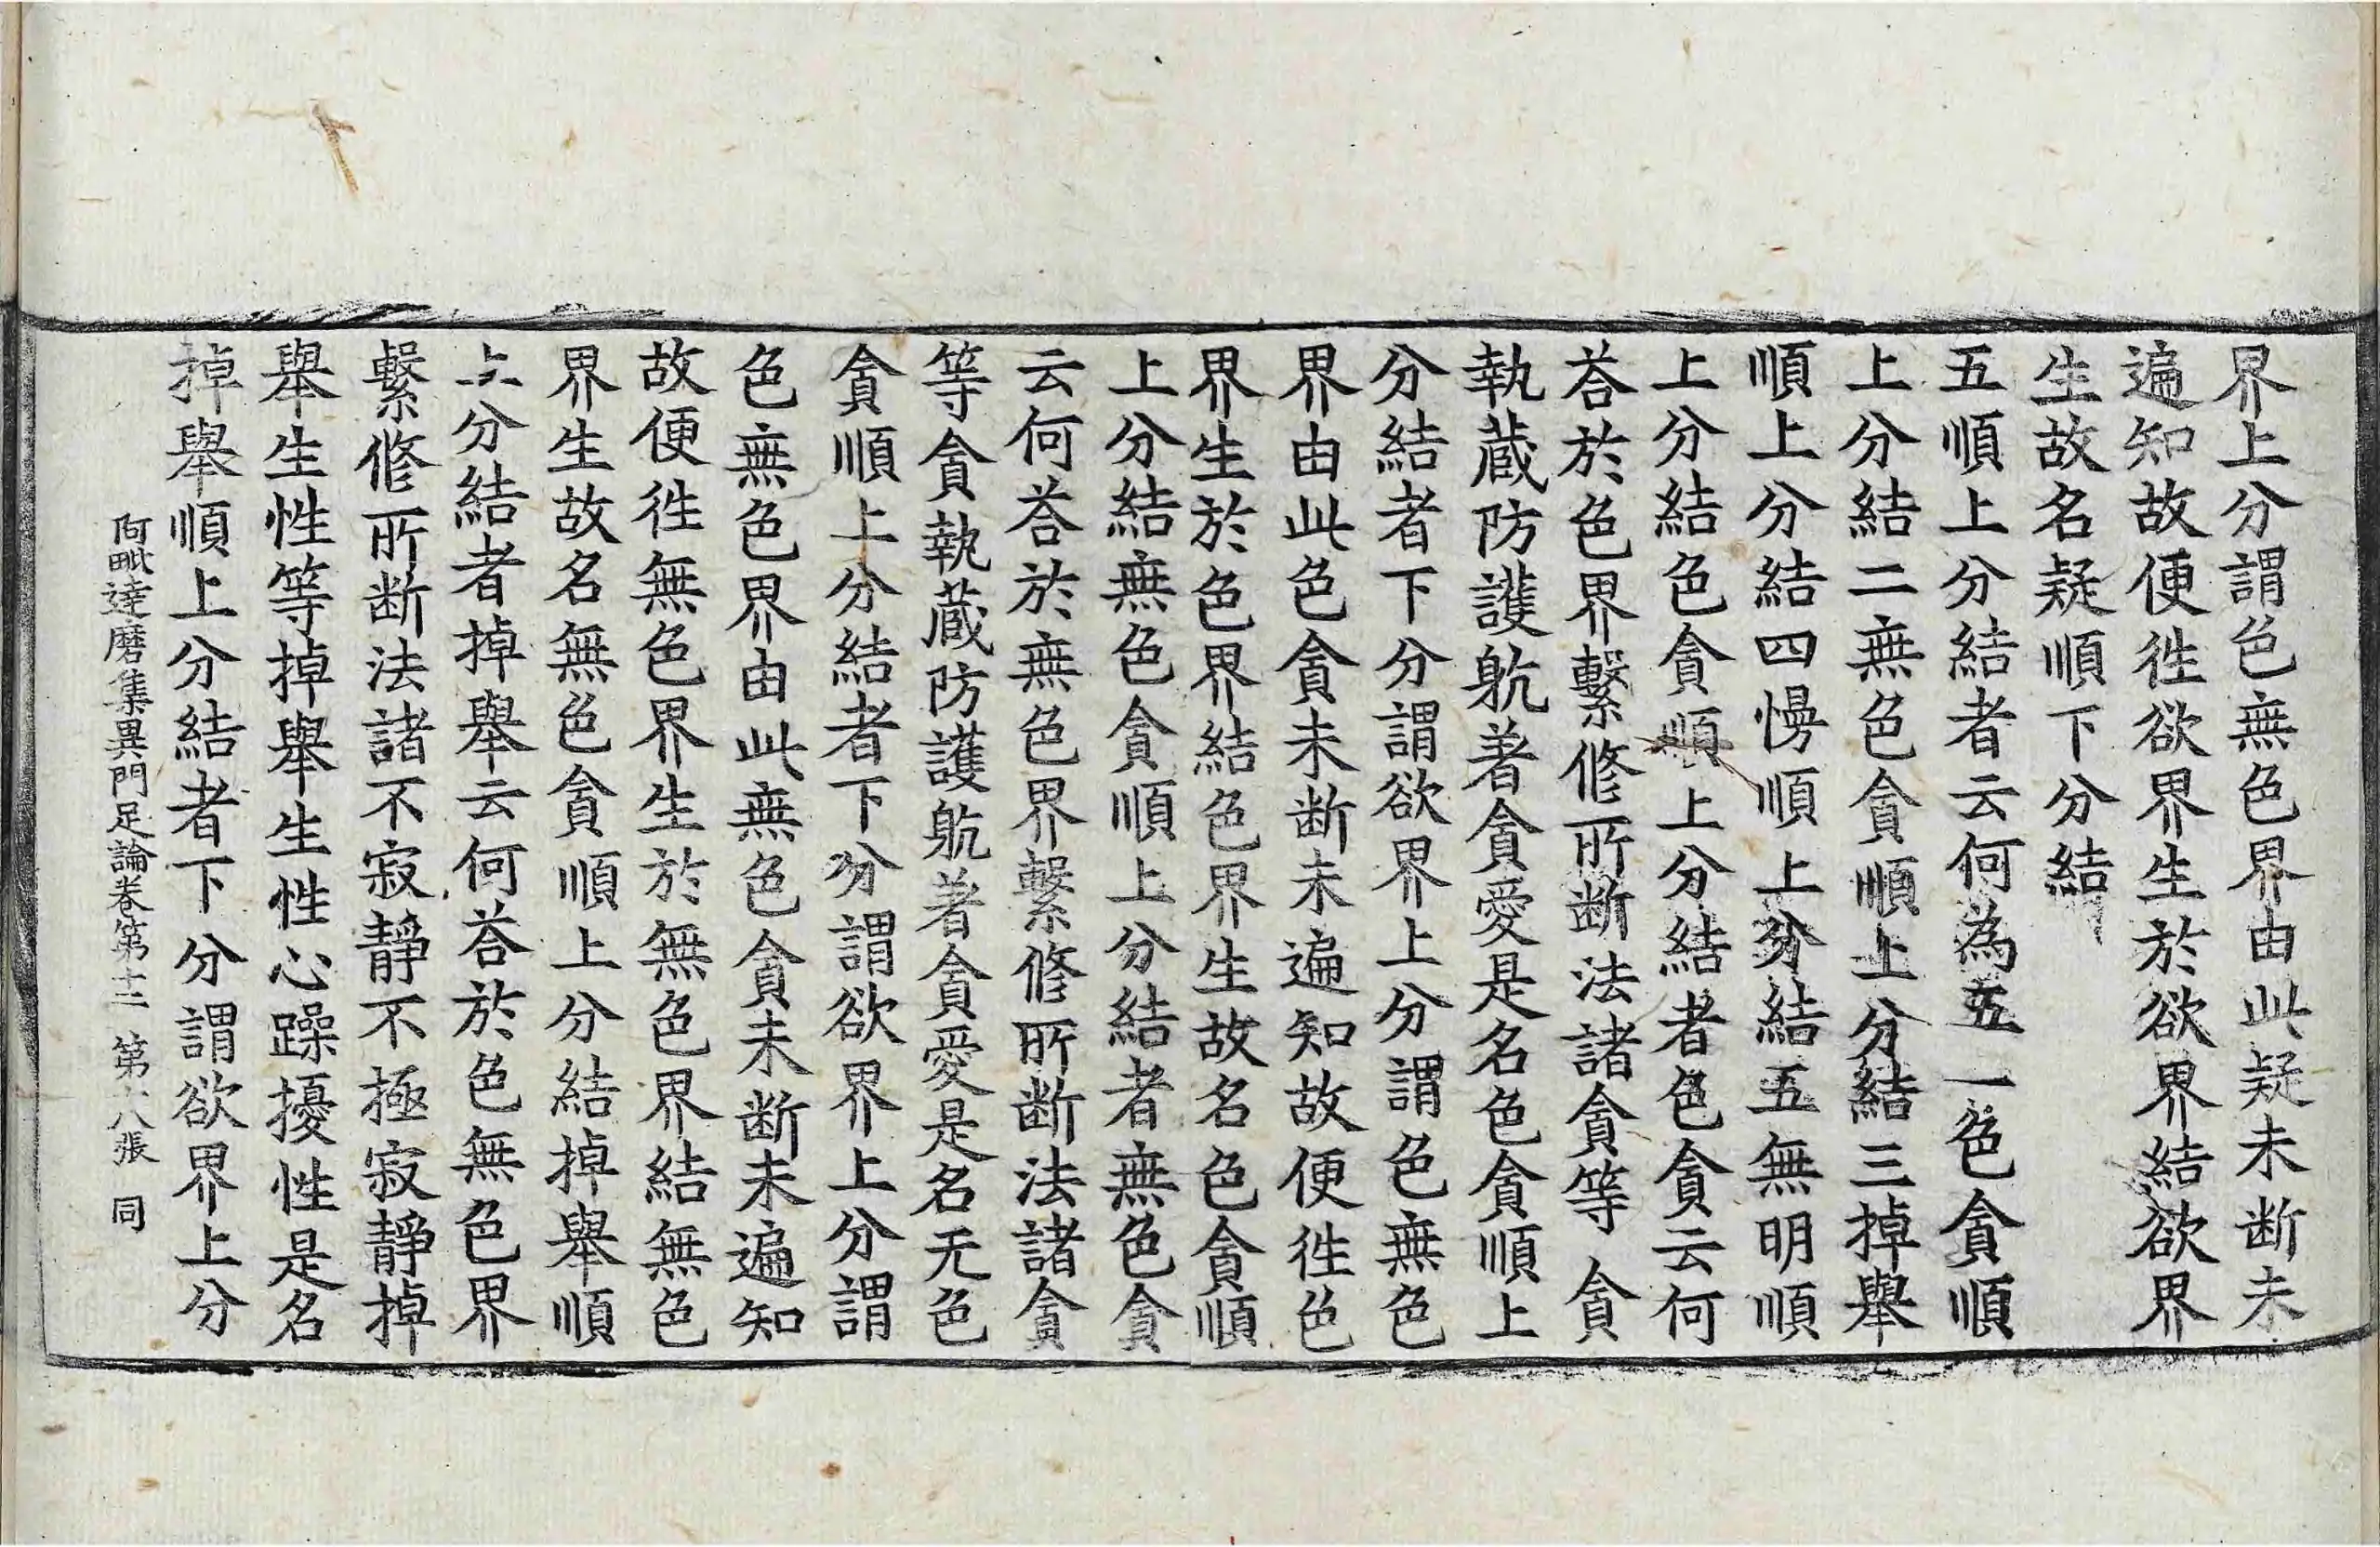 界上分謂色無色界由此疑未断未
遍知故便徃欲界生於欲界結欲界
生故名疑順下分結
五順上分結者云何為五一色貪順
上分結二無色貪順上分結三掉舉
順上分結四慢順上分結五無明順
上分結色貪順上分結者色貪云何
荅於色界繫修所断法諸貪等貪
執蔵防護躭著貪愛是名色貪順上
分結者下分謂欲界上分謂色無色
界由此色貪未断未遍知故便徃色
界生於色界結色界生故名色貪順
上分結無色貪順上分結者無色貪
云何荅於無色界繫修所断法諸貪
等貪執蔵防護躭著貪愛是名无色
貪順上分結者下分謂欲界上分謂
色無色界由此無色貪未断未遍知
故便徃無色界生於無色界結無色
界生故名無色貪順上分結掉舉順
上分結者掉舉云何荅於色無色界
繫修所断法諸不寂靜不極寂靜掉
舉生性等掉舉生性心躁擾性是名
掉舉順上分結者下分謂欲界上分
阿毗達磨集異門足論卷第十二 第六張 同